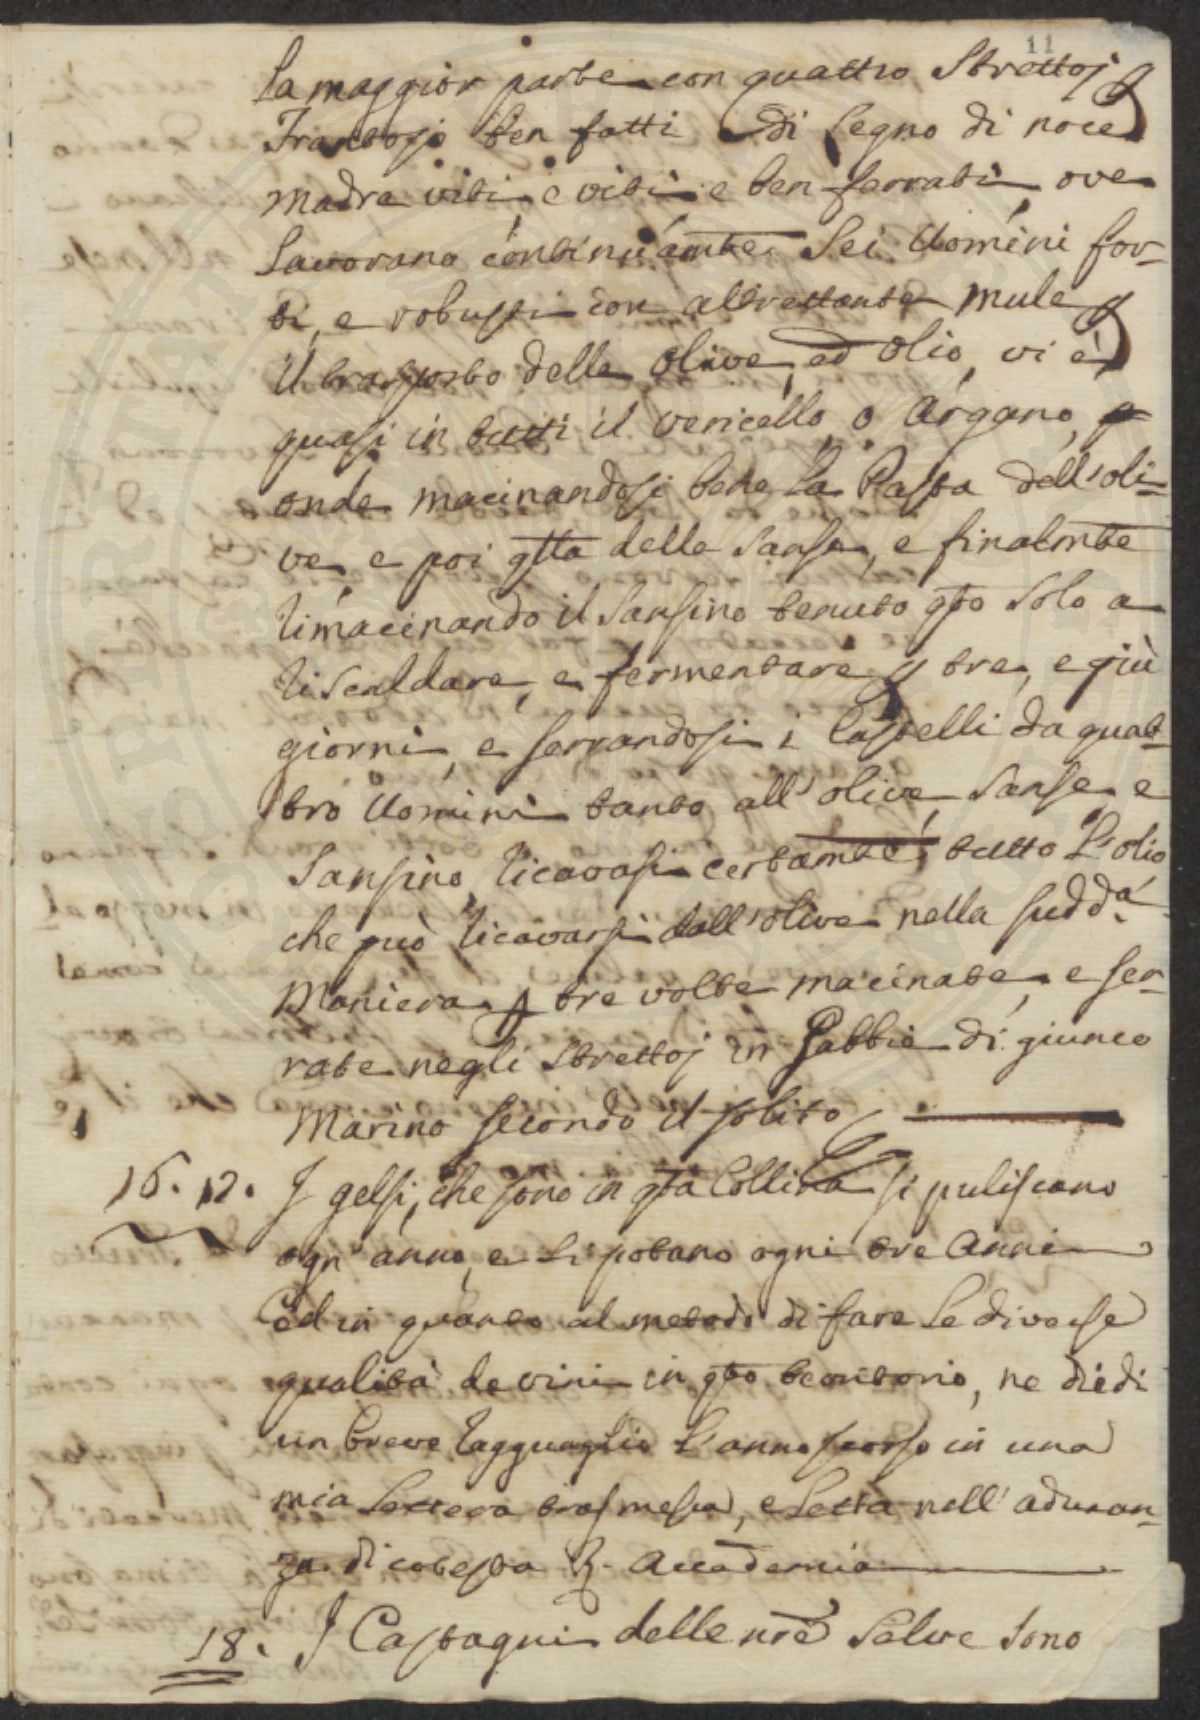 11
la maggior parte con quattro Strettoj p
Frantojo ben fatti di legno di noce
madre viti, e viti e ben ferrati, ove
lavorano continuamte. Sei Uomini for-
ti, e robusti con altrettante Mule p
il trasporto delle Olive, ed Olio, vi è
quasi in tutti il vericello, o Argano, p
onde macinandosi bene la Pasta dell'oli-
ve, e poi qlla delle Sanse, e finalmte
rimacinando il Sansino tenuto qto solo a
riscaldare, e fermentare p tre, e più
giorni, e serrandosi i Castelli da quat-
tro Uomini tanto all'olive, Sanse, e
Sansino, ricavasi certamte, tutto l'olio
che può ricavarsi dall'olive nella sudda.
Maniera, p tre volte macinate, e ser-
rate negli Strettoj in Gabbie di giunco
Marino secondo il solito
16. 17. I gelsi, che sono in qta Collina si puliscono
ogn'anno, e si potano ogni tre Anni
Ed in quanto al metodo di fare le diverse
qualità de vini in qto territorio, ne diedi
un breve ragguaglio l'anno scorso in una
mia lettera trasmessa, e letta nell'adunan-
za di cotesta R. Accademia
18. I Castagni delle nre Selve sono